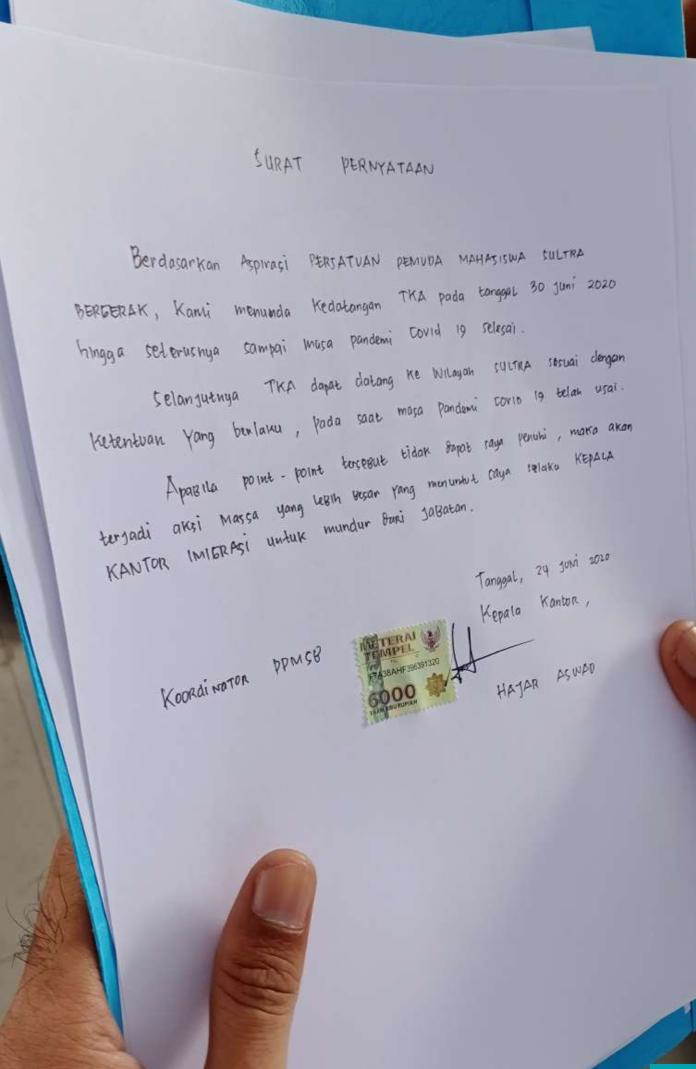 SURAT PERNYATAAN
Berdasarkan Aspirasi PERSATUAN PEMUDA MAHASISWA SULTRA
BERGERAK, Kami menunda Kedatangan TKA pada tanggal 30 Juni 2020
hingga seterusnya sampai masa pandemi Covid 19 selesai.
Selanjutnya TKA dapat datang ke Wilayah SULTRA sesuai dengan
Ketentuan Yang berlaku, Pada saat masa Pandemi Covid 19 telah usai.
Apabila point-point tersebut tidak dapat saya penuhi, maka akan
terjadi aksi Massa yang lebih besar yang menuntut saya selaku KEPALA
KANTOR IMIGRASI untuk mundur dari Jabatan.
Tanggal, 24 Juni 2020
Kepala Kantor,
Koordinator PPMSB
METERAI
TEMPEL
396391320
6000
ENAM RIBU RUPIAH
HAJAR ASWAD